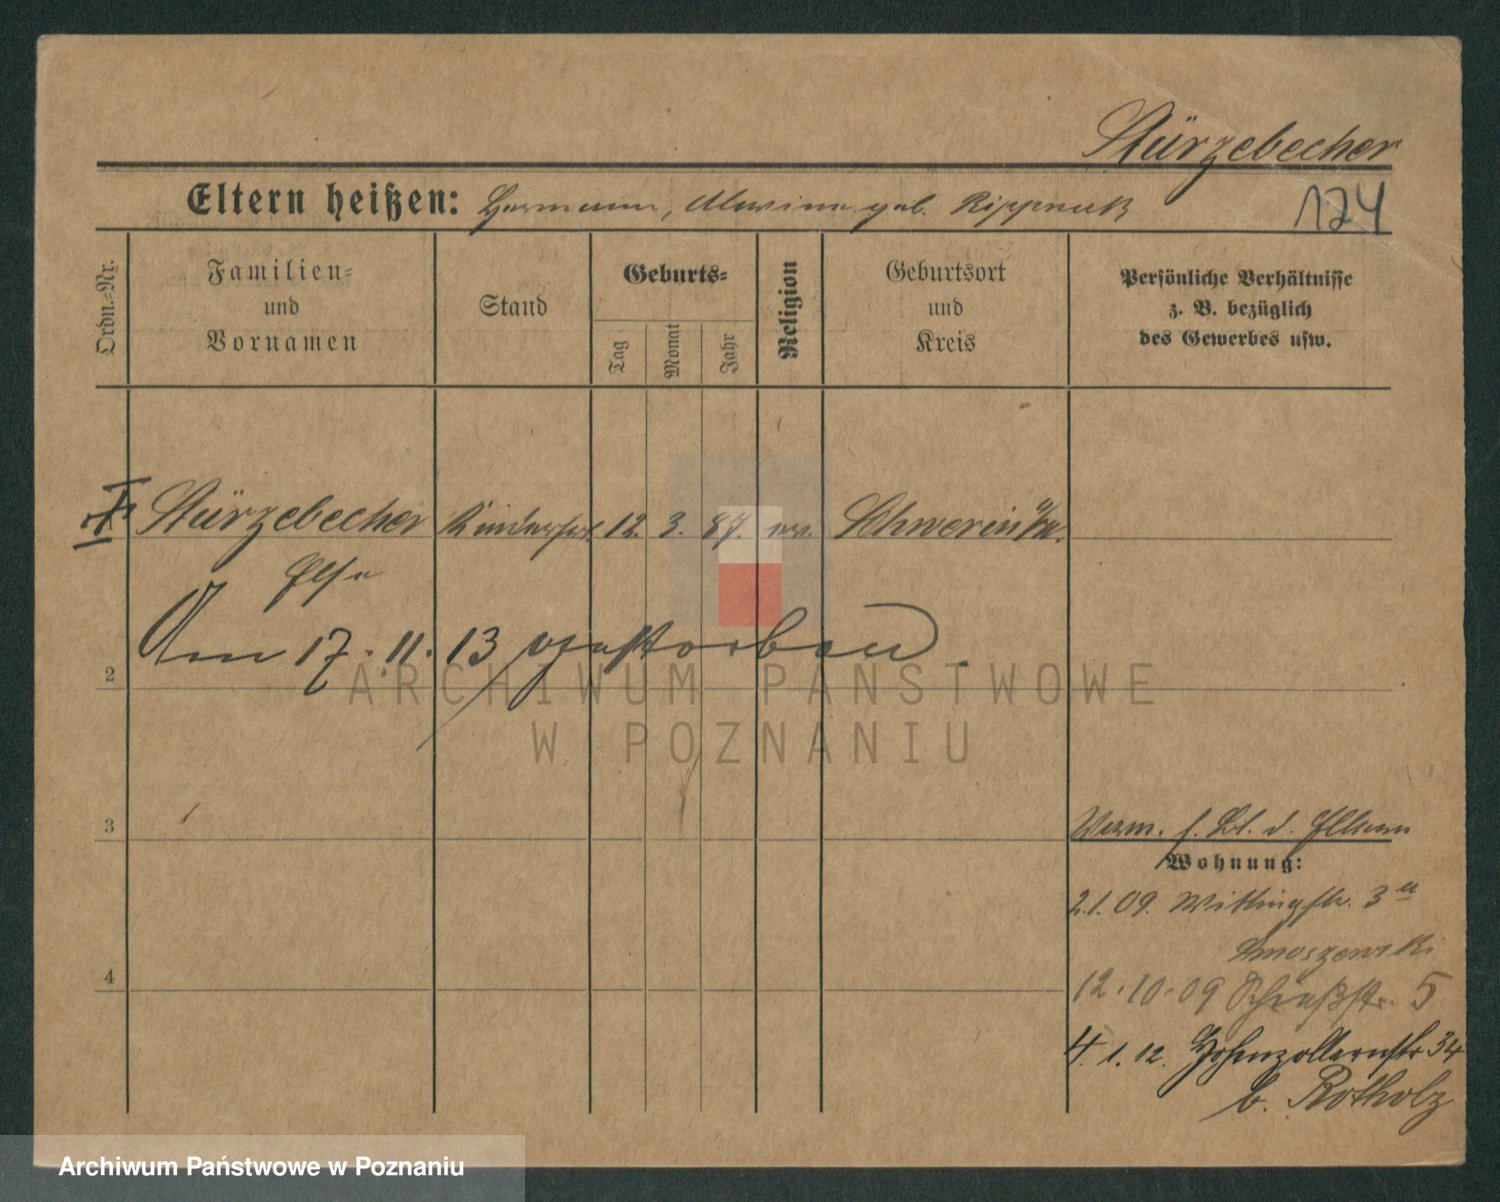 Stürzebecher
Eltern heißen: Hermann, Alwine geb.
124
Ordn.=Nr.
Familien=
und
Vornamen
Stand
Geburts=
Tag
Monat
Jahr
Religion
Geburtsort
und
Kreis
Persönliche Verhältnisse
z. B. bezüglich
des Gewerbes usw.
Stürzebecher Kinderfrl. 12. 3. 87. ev. Schwerin a/W.
Else
Am 17. 11. 13 verstorben.
2
ARCHIWUM PAŃSTWOWE
W POZNANIU
3
Verm. f. d.
Wohnung:
2.1.09. str. 3
4
12.10.09 Schießstr. 5
4.1.12. Hohenzollernstr 34
b. Rotholz
Archiwum Państwowe w Poznaniu